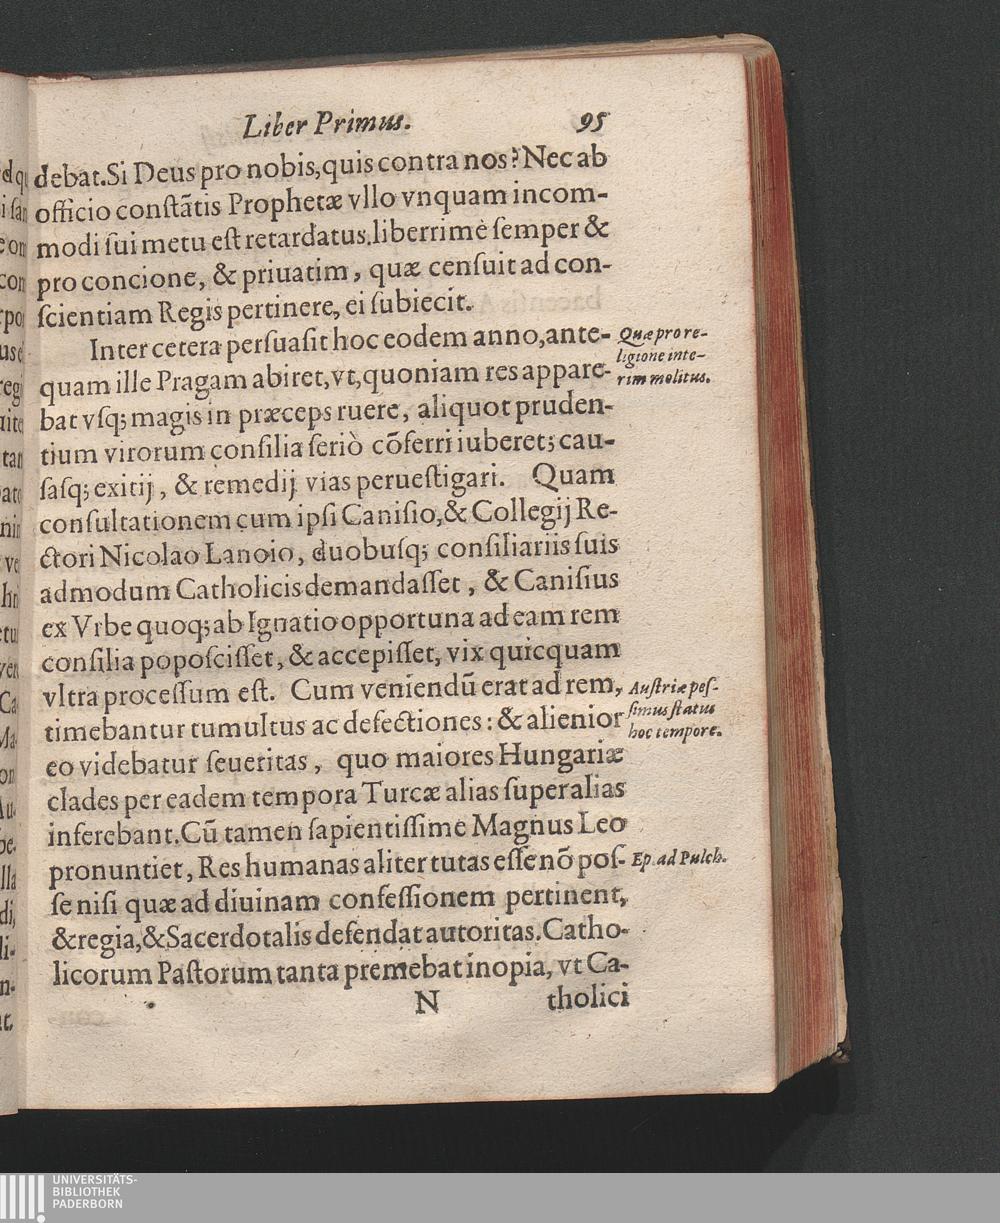 Liber Primus. 95
debat. Si Deus pro nobis, quis contra nos? Nec ab
officio conſtãtis Prophetæ vllo vnquam incom-
modi ſui metu eſt retardatus, liberrimè ſemper &
pro concione, & priuatim, quæ cenſuit ad con-
ſcientiam Regis pertinere, ei ſubiecit.
Inter cetera perſuaſit hoc eodem anno, ante-
quam ille Pragam abiret, vt, quoniam res appare-
bat vſq; magis in præceps ruere, aliquot pruden-
tium virorum conſilia ſeriò cõferri iuberet; cau-
ſaſq; exitij, & remedij vias perueſtigari. Quam
conſultationem cum ipſi Caniſio, & Collegij Re-
ctori Nicolao Lanoio, duobuſq; conſiliariis ſuis
admodum Catholicis demandaſſet, & Caniſius
ex Vrbe quoq; ab Ignatio opportuna ad eam rem
conſilia popoſciſſet, & accepiſſet, vix quicquam
vltra proceſſum eſt. Cum veniendũ erat ad rem,
timebantur tumultus ac defectiones: & alienior
eo videbatur ſeueritas, quo maiores Hungariæ
clades per eadem tempora Turcæ alias ſuper alias
inferebant. Cũ tamen ſapientiſſimè Magnus Leo
pronuntiet, Res humanas aliter tutas eſſe nõ poſ-
ſe niſi quæ ad diuinam confeſſionem pertinent,
& regia, & Sacerdotalis defendat autoritas. Catho-
licorum Paſtorum tanta premebat inopia, vt Ca-
N tholici
Quæ pro re-
ligione inte-
rim molitus.
Auſtriæ peſ-
ſimus ſtatus
hoc tempore.
Ep. ad Pulch.
UNIVERSITÄTS-
BIBLIOTHEK
PADERBORN